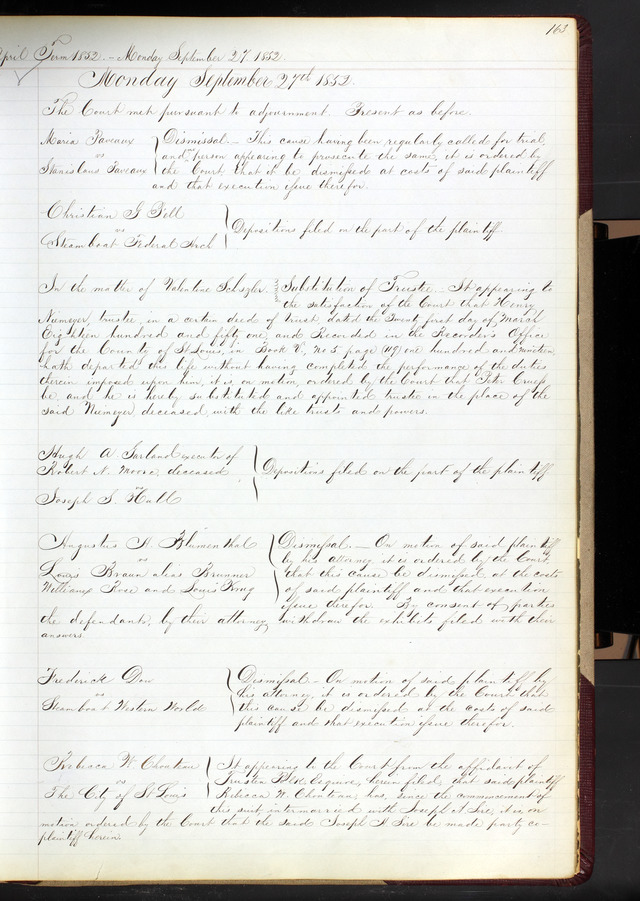 163
April Term 1852. - Monday September 27. 1852.
Monday September 27th 1852.
The Court met pursuant to adjournment. Present as before.
Maria Paveaux
vs
Stanislaus Paveaux
Dismissal. - This cause having been regularly called for trial,
and no person appearing to prosecute the same, it is ordered by
the Court that it be dismissed at costs of said plaintiff
and that execution issue therefor.
Christian G Fell
vs
Steam boat Federal Arch
Depositions filed on the part of the plaintiff.
In the matter of Valentine
Substitution of Trustee. - It appearing to
the satisfaction of the Court that Henry
Niemeyer, trustee, in a certain deed of trust dated the twenty first day of March
Eighteen hundred and fifty one, and Recorded in the Recorder's Office
for the County of St Louis, in Book No 5 page (119) one hundred and nineteen
hath departed this life without having completed the performance of the duties
therein imposed upon him, it is, on motion, ordered by the Court that Peter
be, and he is hereby substituted and appointed trustee in the place of the
said Niemeyer, deceased, with the like trusts and powers.
Hugh A. Garland executor of
Robert N. Moore, deceased
vs
Joseph S. Hull
Depositions filed on the part of the plaintiff.
Augustus H. Blumenthal
vs
Louis Braun alias Brunner
William Rose and Louis
Dismissal. - On motion of said plaintiff
by his attorney it is ordered by the Court
that this cause be dismissed, at the costs
of said plaintiff and that execution
issue therefor. By consent of parties
the defendants, by their attorney, withdraw the exhibits filed with their
answers.
Frederick Dow
vs
Steamboat Western World
Dismissal. - On motion of said plaintiff by
his attorney, it is ordered by the Court that
this cause be dismissed at the costs of said
plaintiff and that execution issue therefor.
Rebecca W. Chouteau
vs
The City of St Louis
It appearing to the Court from the affidavit of
Trusten Polk, Esquire, herein filed, that said plaintiff
Rebecca W. Chouteau, has, since the commencement of
this suit, intermarried with Joseph A Sire, it is, on
motion ordered by the Court that the said Joseph A Sire be made party co-
plaintiff herein.